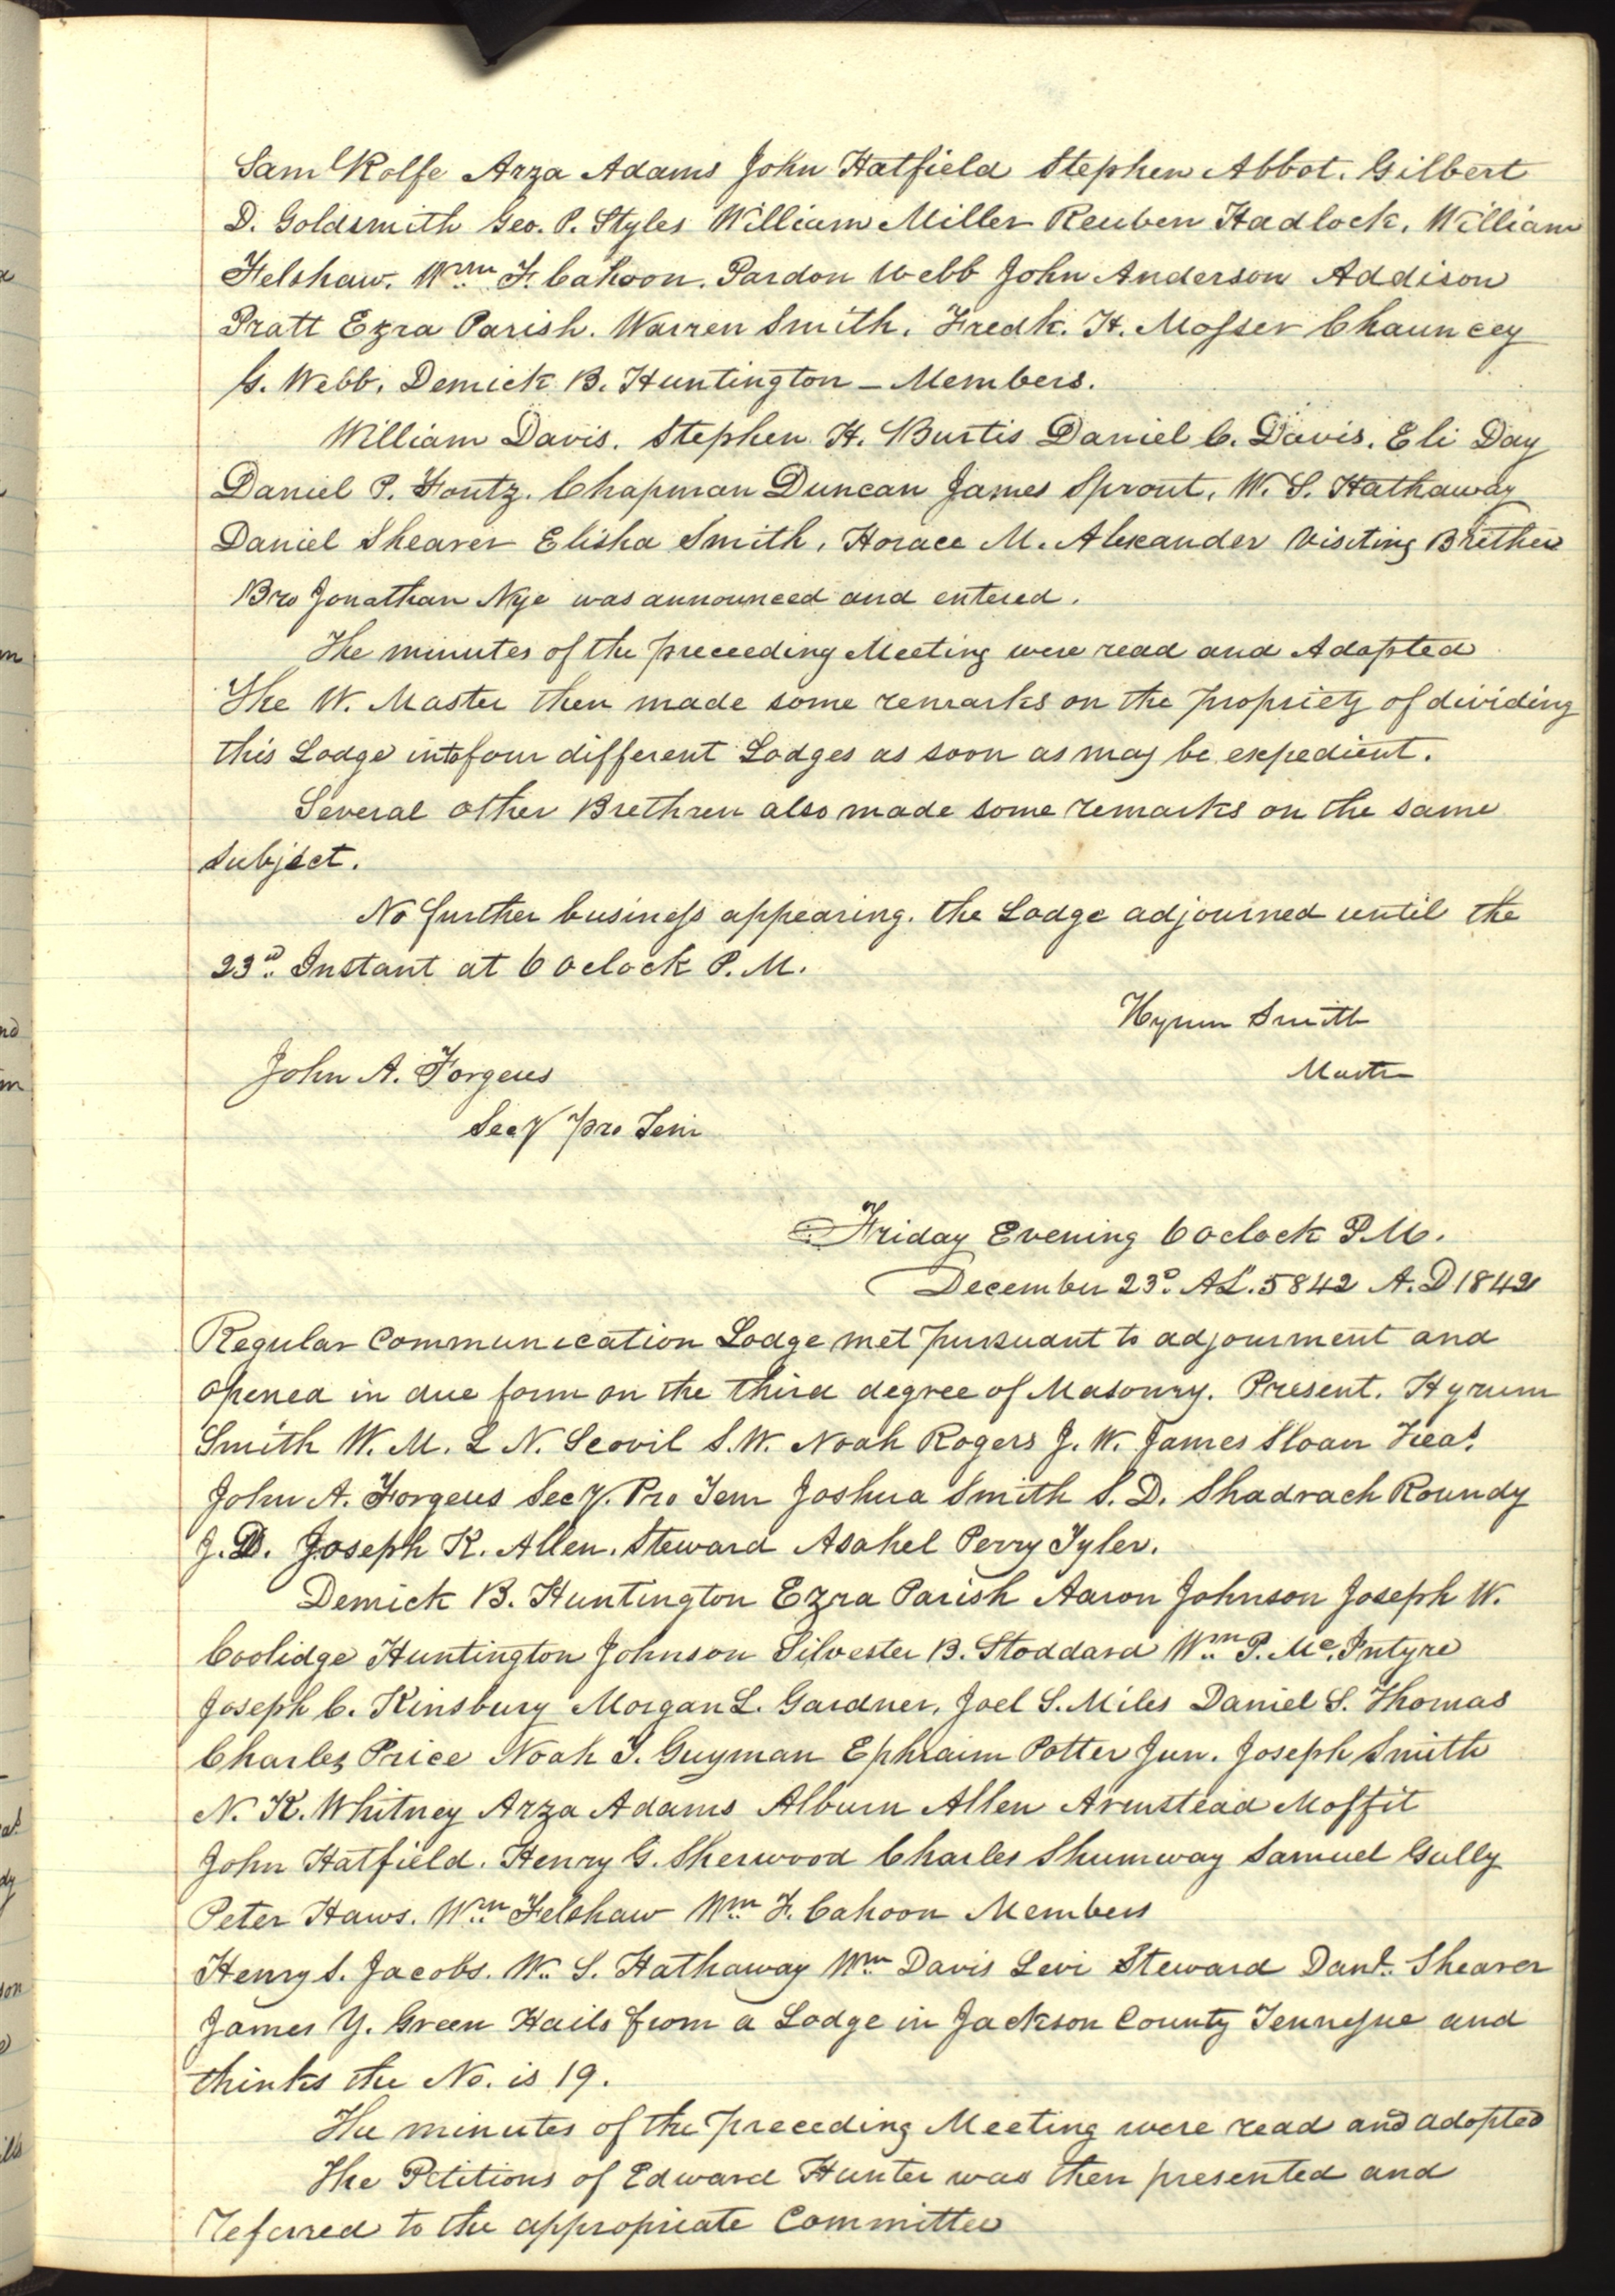 Saml Rolfe Arza Adams John Hatfield Stephen Abbot. Gilbert
D. Goldsmith Geo. P. Styles William Miller Reuben Hadlock. William
Felshaw. Wm F. Cahoon. Pardon Webb John Anderson Addison
Pratt Ezra Parish. Warren Smith. Fredk. H. Mosser Chauncey
G. Webb. Demick B. Huntington – Members.
William Davis. Stephen H. Burtis Daniel C. Davis. Eli Day
Daniel P. Fontz. Chapman Duncan James Sprout. W. S. Hathaway
Daniel Shearer Elisha Smith, Horace M. Alexander Visiting Brethen
Bro Jonathan Nye was announced and entered.
The minutes of the preceeding Meeting were read and Adopted
The W. Master then made some remarks on the propriety of dividing
this Lodge into four different Lodges as soon as may be expedient.
Several other Brethren also made some remarks on the same
subject.
No further business appearing. the Lodge adjourned until the
23d. Instant at 6 Oclock P. M.
Hyrum Smith
Master
John A. Forgeus
Secy pro Tem
Friday Evening 6 Oclock P.M.
December 23d. AL. 5842 A. D 1842
Regular Communication Lodge met pursuant to adjourment and
opened in due form on the third degree of Masonry. Present. Hyrum
Smith W. M. L N. Scovil S. W. Noah Rogers J. W. James Sloan Treas.
John A. Forgeus Secy. Pro Tem Joshua Smith S. D. Shadrach Roundy
J. D. Joseph K. Allen. Steward Asahel Perry Tyler.
Demick B. Huntington Ezra Parish Aaron Johnson Joseph W.
Coolidge Huntington Johnson Silvester B. Stoddard Wm. P. Mc.Intyre
Joseph C. Kinsbury Morgan L. Gardner, Joel S. Miles Daniel S. Thomas
Charles Price Noah T. Guyman Ephraim Potter Jun. Joseph Smith
N. K. Whitney Arza Adams Album Allen Armstead Moffit
John Hatfield. Henry G. Sherwood Charles Shumway Samuel Gully
Peter Haws. Wm. Felshaw Wm. F. Cahoon Members
Henry S. Jacobs. W. S. Hathaway Wm Davis Levi Steward Danl. Shearer
James Y. Green Hails from a Lodge in Jackson County Tennessee and
thinks the No. is 19.
The minutes of the preceeding Meeting were read and adopted
The Petitions of Edward Hunter was then presented and
referred to the appropriate Committee